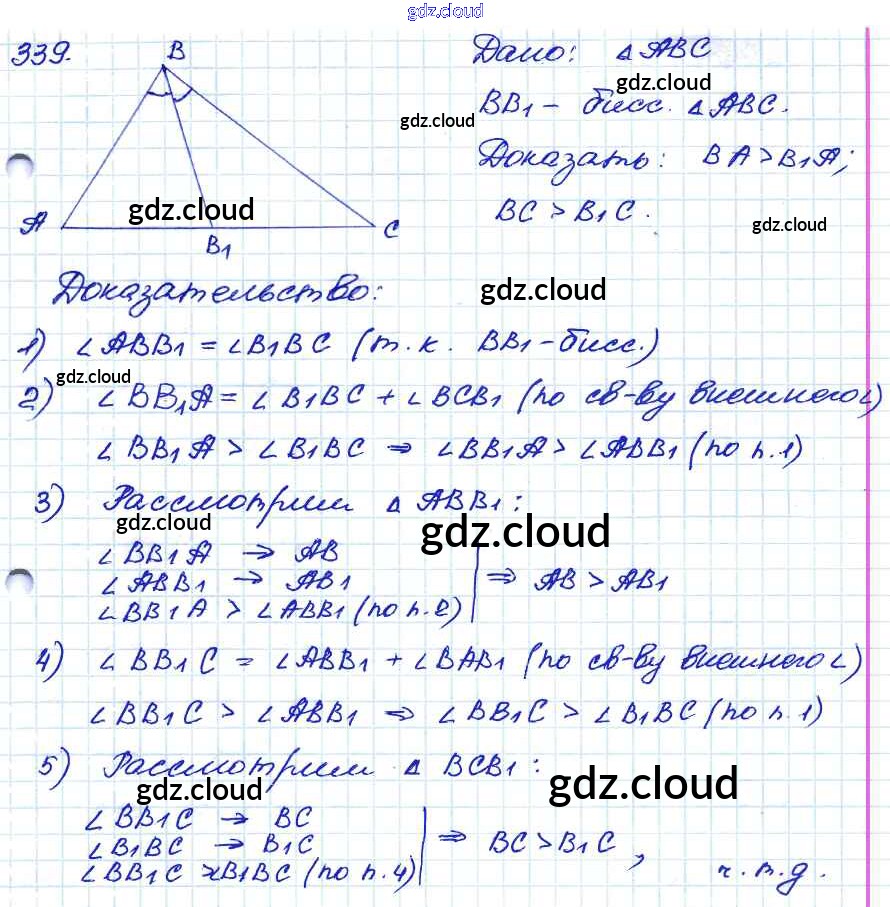 gdz.cloud
339.
B
A
B₁
C
Дано: △ABC
gdz.cloud
BB₁ - бисс. △ABC.
gdz.cloud
Доказать: BA > B₁A;
BC > B₁C.
gdz.cloud
gdz.cloud
Доказательство:
gdz.cloud
1) ∠ABB₁ = ∠B₁BC (т.к. BB₁-бисс.)
gdz.cloud
2) ∠BB₁A = ∠B₁BC + ∠BCB₁ (по св-ву внешнего ∠)
∠BB₁A > ∠B₁BC ⇒ ∠BB₁A > ∠ABB₁ (по п.1)
3) Рассмотрим △ABB₁:
gdz.cloud
gdz.cloud
∠BB₁A → AB
∠ABB₁ → AB₁ ⇒ AB > AB₁
∠BB₁A > ∠ABB₁ (по п.2)
4) ∠BB₁C = ∠ABB₁ + ∠BAB₁ (по св-ву внешнего ∠)
∠BB₁C > ∠ABB₁ ⇒ ∠BB₁C > ∠B₁BC (по п.1)
5) Рассмотрим △BCB₁:
gdz.cloud
gdz.cloud
∠BB₁C → BC
∠B₁BC → B₁C ⇒ BC > B₁C,
∠BB₁C >∠B₁BC (по п.4)
ч.т.д.